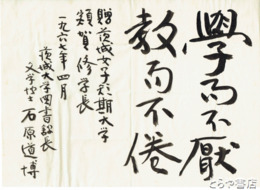 學而不厭
教而不倦
贈茨城女子短期大学
額賀修学長
一九六七年四月
茨城大学図書館長
文学博士石原道博
とらや書店